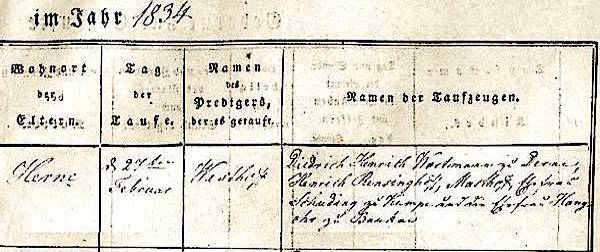 im Jahr 1834
Wohnort
der
Eltern.
Tag
der
Taufe.
Namen
des
Predigers,
der es getauft.
Namen der Taufzeugen.
Herne
d 27ten
Februar
Westhoff
Diedrich Henrich Wortmann zu Herne,
Henrich Rensinghoff, Masthoff, Ehefrau
Schuding zu Kumpe und die Ehefrau Hang
ohr zu Baukau